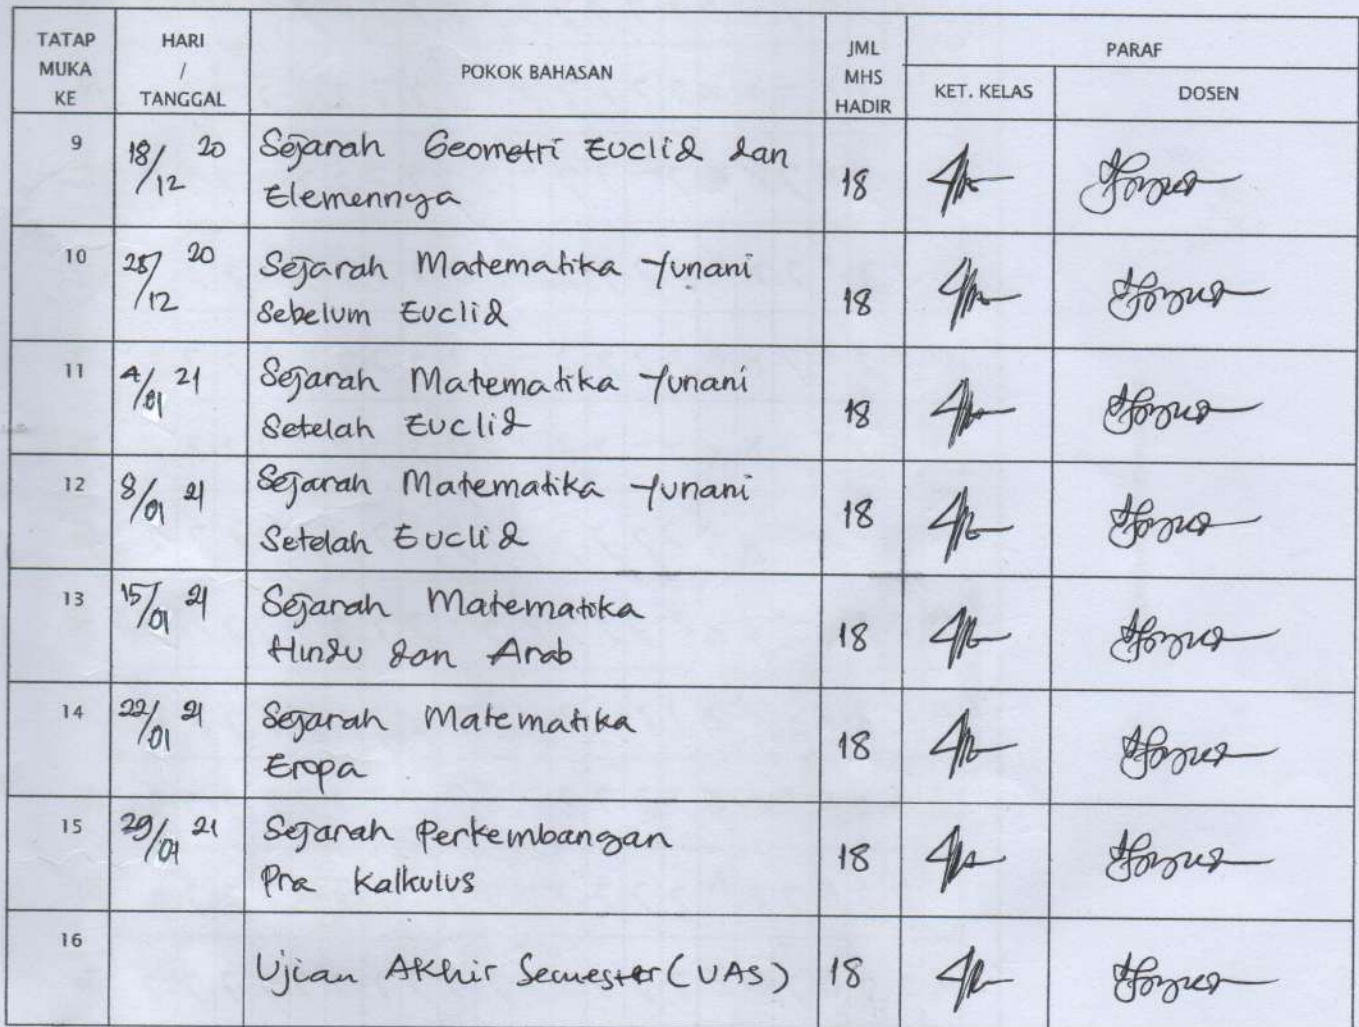 TATAP MUKA KE
HARI / TANGGAL
POKOK BAHASAN
JML MHS HADIR
PARAF
KET. KELAS
DOSEN
9
18/12 20
Sejarah Geometri Euclid dan
Elemennya
18
10
28/12 20
Sejarah Matematika Yunani
Sebelum Euclid
18
11
4/01 21
Sejarah Matematika Yunani
Setelah Euclid
18
12
8/01 21
Sejarah Matematika Yunani
Setelah Euclid
18
13
15/01 21
Sejarah Matematika
Hindu dan Arab
18
14
22/01 21
Sejarah Matematika
Eropa
18
15
29/01 21
Sejarah Perkembangan
Pra Kalkulus
18
16
Ujian Akhir Semester (UAS)
18